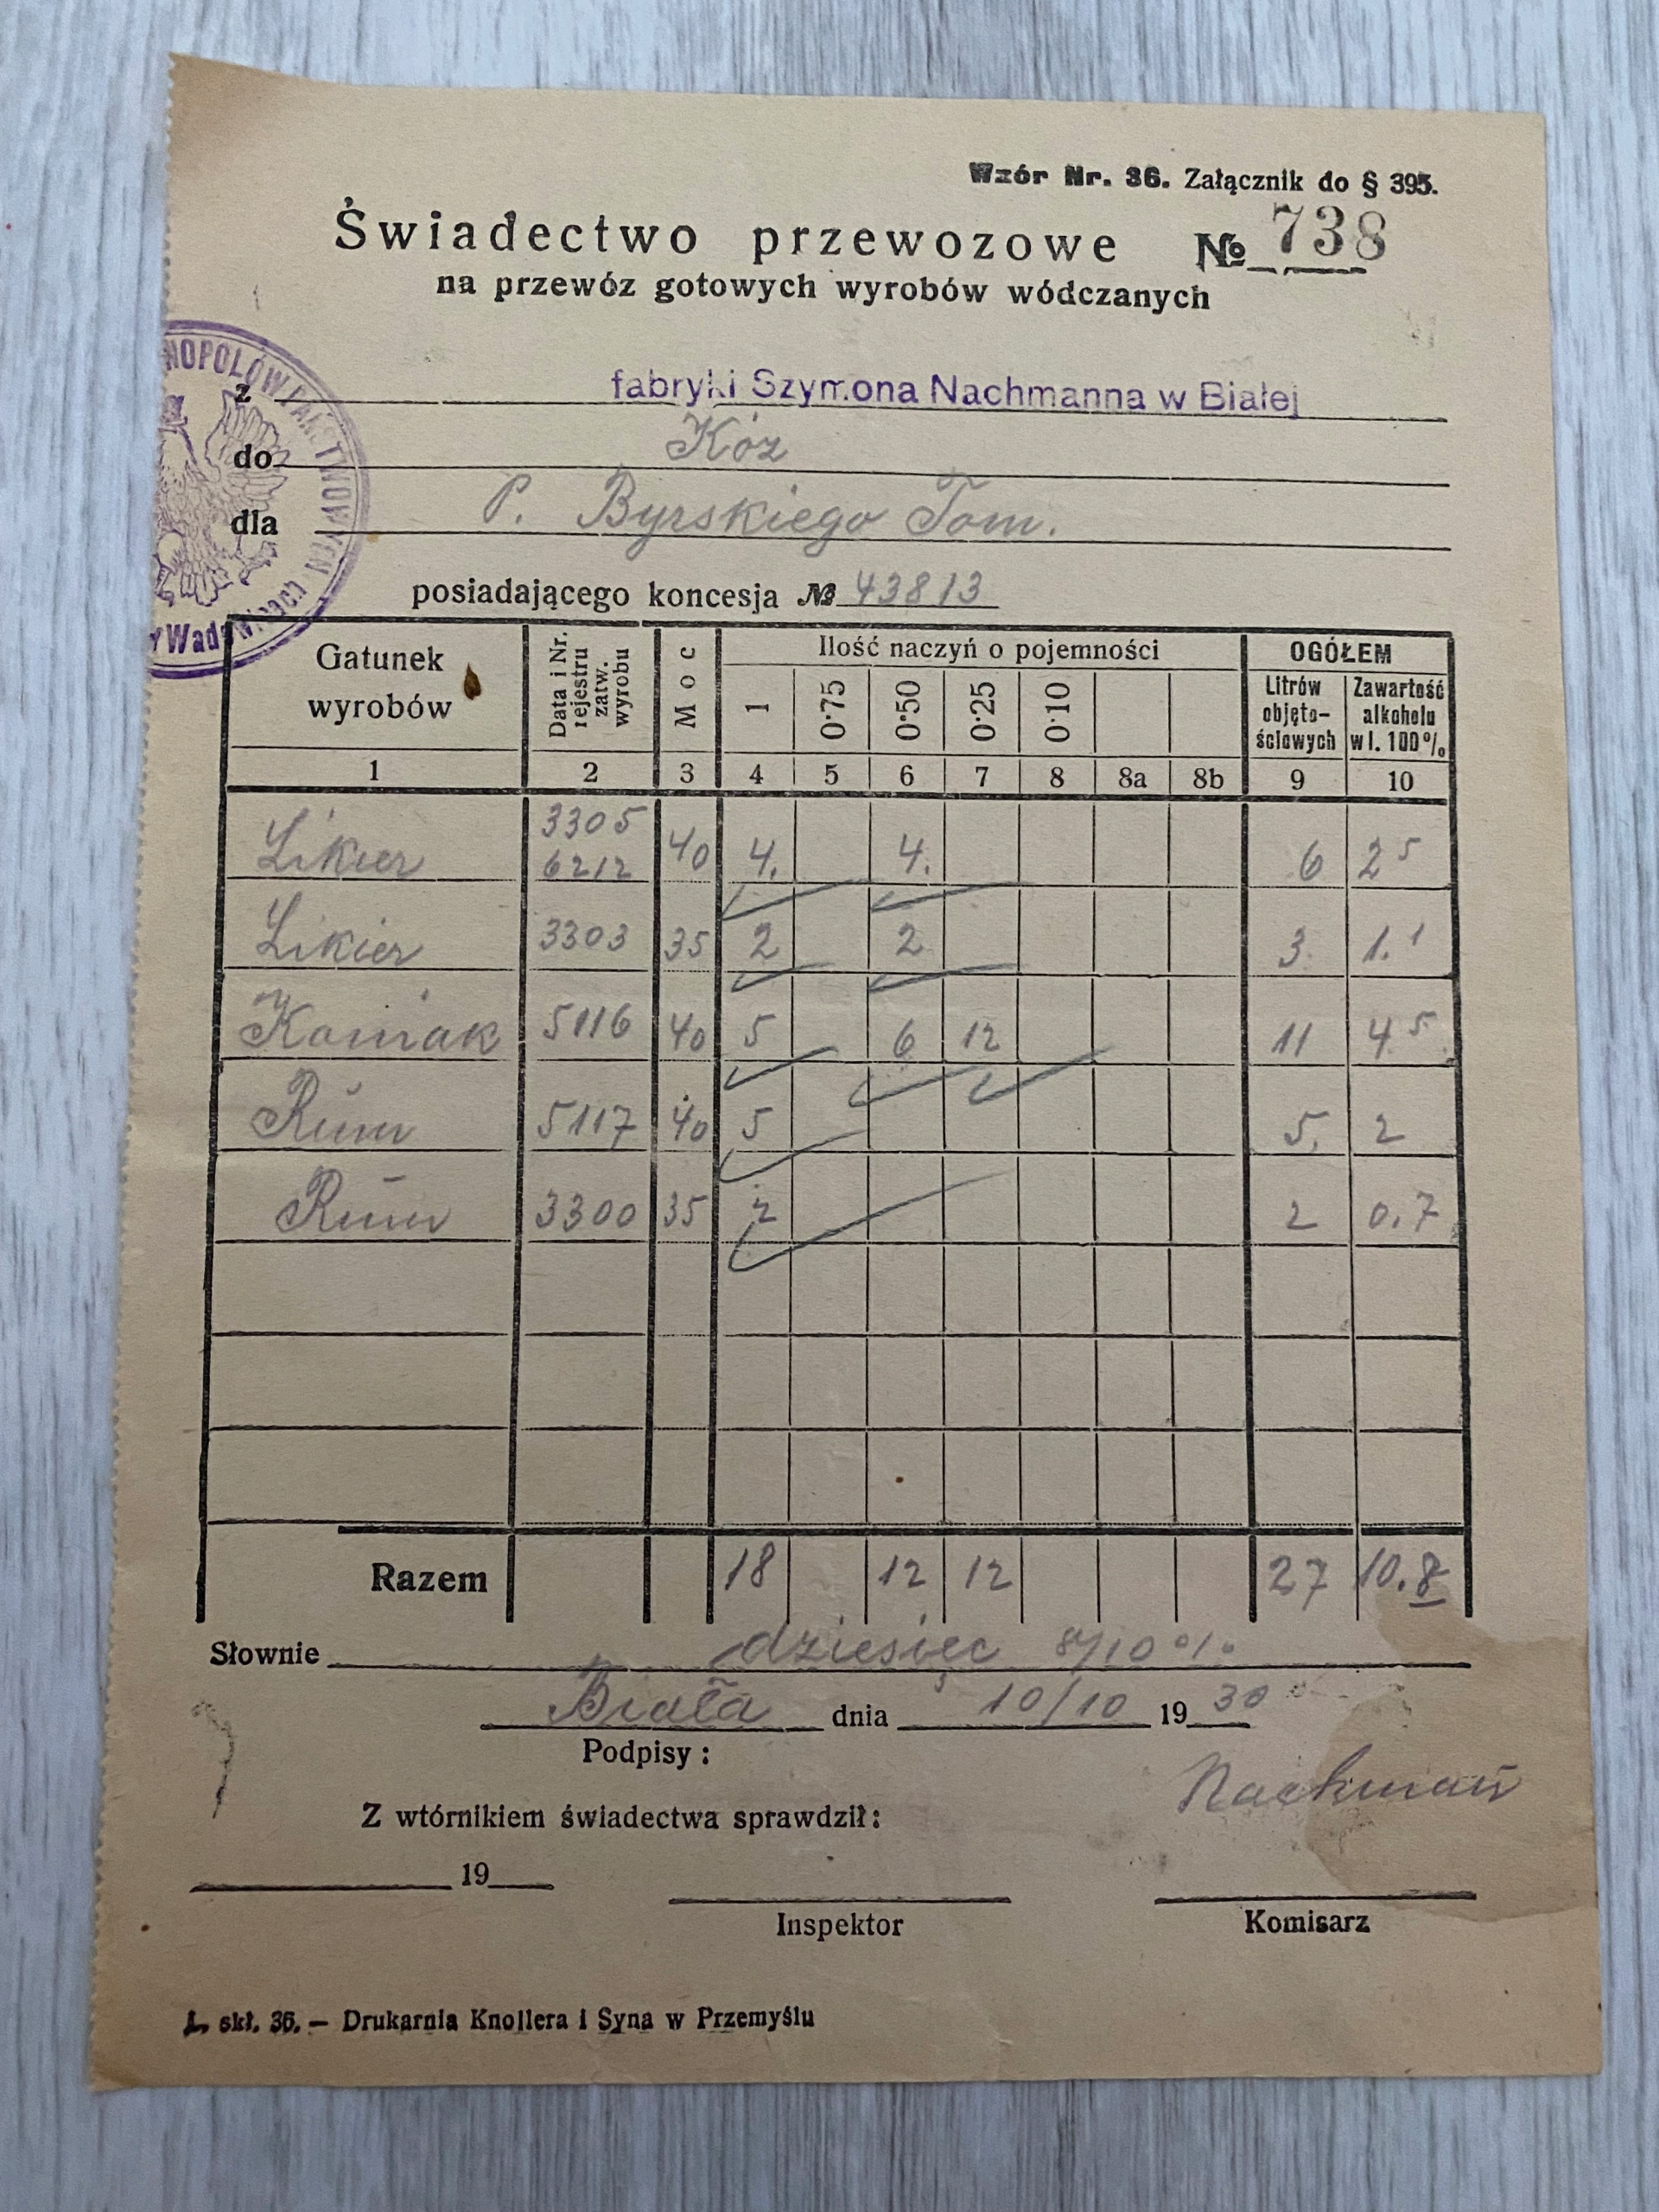 Wzór Nr. 36. Załącznik do § 395.
Świadectwo przewozowe № 738
na przewóz gotowych wyrobów wódczanych
z fabryki Szymona Nachmanna w Białej
do Kóz
dla P. Byrskiego Tom.
posiadającego koncesja № 43813
Gatunek wyrobów | Data i Nr. rejestru zatw. wyrobu | Moc | Ilość naczyń o pojemności | OGÓŁEM
1 | 0·75 | 0·50 | 0·25 | 0·10 | Litrów objęto-ściowych | Zawartość alkoholu w l. 100%
1 2 3 4 5 6 7 8 8a 8b 9 10
Likier 3305 6212 40 4. 4. 6 2 5
Likier 3303 35 2 2 3. 1.1
Koniak 5116 40 5 6 12 11 4 5
Rum 5117 40 5 5. 2
Rum 3300 35 2 2 0.7
Razem 18 12 12 27 10.8
Słownie dziesięc 8/10 %
Biała dnia 10/10 1930
Podpisy:
Nachman
Z wtórnikiem świadectwa sprawdził:
19
Inspektor Komisarz
L. skł. 36. — Drukarnia Knollera i Syna w Przemyślu